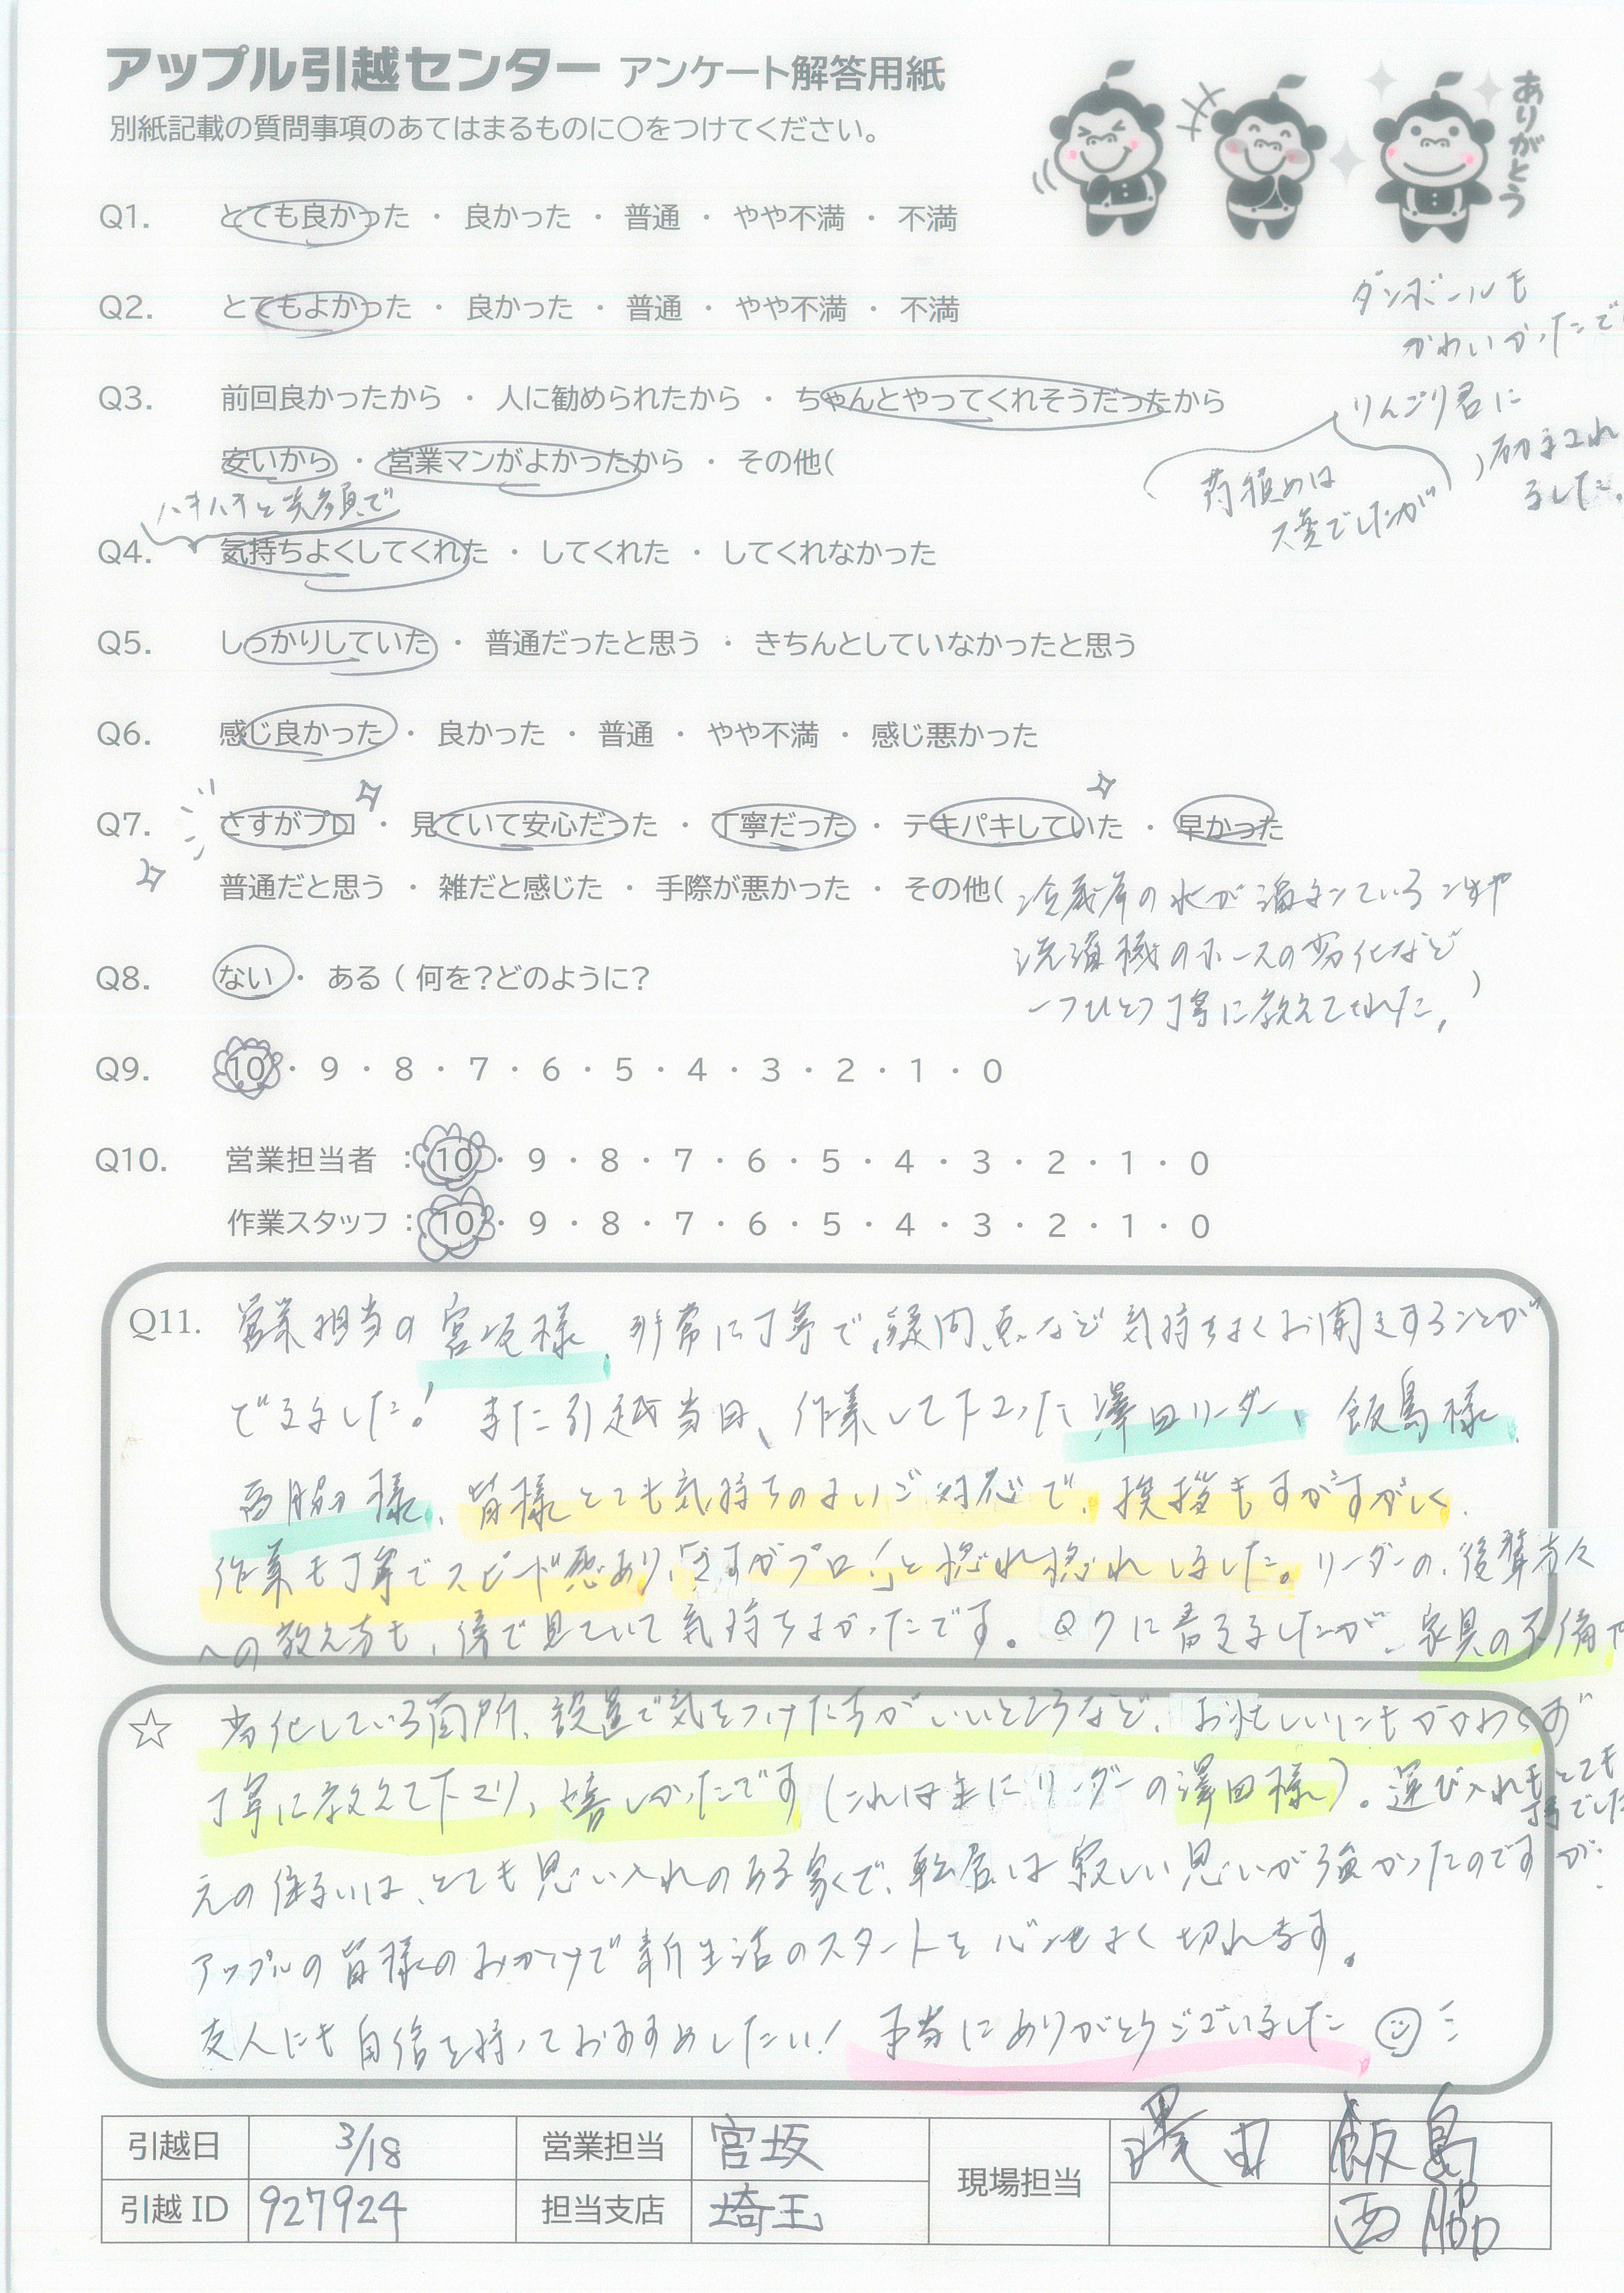 アップル引越センター アンケート解答用紙
別紙記載の質問事項のあてはまるものに○をつけてください。
ありがとう
Q1. とても良かった ・ 良かった ・ 普通 ・ やや不満 ・ 不満
Q2. とてもよかった ・ 良かった ・ 普通 ・ やや不満 ・ 不満
ダンボールも
かわいかったで
Q3. 前回良かったから ・ 人に勧められたから ・ ちゃんとやってくれそうだったから
安いから ・ 営業マンがよかったから ・ その他( )
りんごり君に
荷積めは
大変でしたが
励まされ
ました。
ハキハキと笑顔で
Q4. 気持ちよくしてくれた ・ してくれた ・ してくれなかった
Q5. しっかりしていた ・ 普通だったと思う ・ きちんとしていなかったと思う
Q6. 感じ良かった ・ 良かった ・ 普通 ・ やや不満 ・ 感じ悪かった
Q7. さすがプロ ・ 見ていて安心だった ・ 丁寧だった ・ テキパキしていた ・ 早かった
普通だと思う ・ 雑だと感じた ・ 手際が悪かった ・ その他( 冷蔵庫の水が溜まっていることや
洗濯機のホースの劣化など
一つひとつ丁寧に教えてくれた。 )
Q8. ない ・ ある ( 何を?どのように?
Q9. 10 ・ 9 ・ 8 ・ 7 ・ 6 ・ 5 ・ 4 ・ 3 ・ 2 ・ 1 ・ 0
Q10. 営業担当者 : 10 ・ 9 ・ 8 ・ 7 ・ 6 ・ 5 ・ 4 ・ 3 ・ 2 ・ 1 ・ 0
作業スタッフ : 10 ・ 9 ・ 8 ・ 7 ・ 6 ・ 5 ・ 4 ・ 3 ・ 2 ・ 1 ・ 0
Q11. 営業担当の宮坂様、非常に丁寧で、疑問点など気持ちよくお聞きすることが
できました! また引越当日、作業して下さった澤田リーダー、飯島様、
西脇様、皆様とても気持ちのよいご対応で、挨拶もすがすがしく、
作業も丁寧でスピード感あり、「さすがプロ!」と惚れ惚れしました。リーダーの、後輩方々
への教え方も、傍で見ていて気持ちよかったです。Q7に書きましたが、家具の不備や
☆ 劣化している箇所、設置で気をつけたほうがいいところなど、お忙しいにもかかわらず
丁寧に教えて下さり、嬉しかったです(これは主にリーダーの澤田様)。運び入れもとても
丁寧でした
元の住まいは、とても思い入れのある家で、転居は寂しい思いが強かったのですが、
アップルの皆様のおかげで新生活のスタートを心地よく切れます。
友人にも自信を持っておすすめしたい! 本当にありがとうございました
引越日 3/18 営業担当 宮坂 現場担当 澤田 飯島
引越ID 927924 担当支店 埼玉 西脇